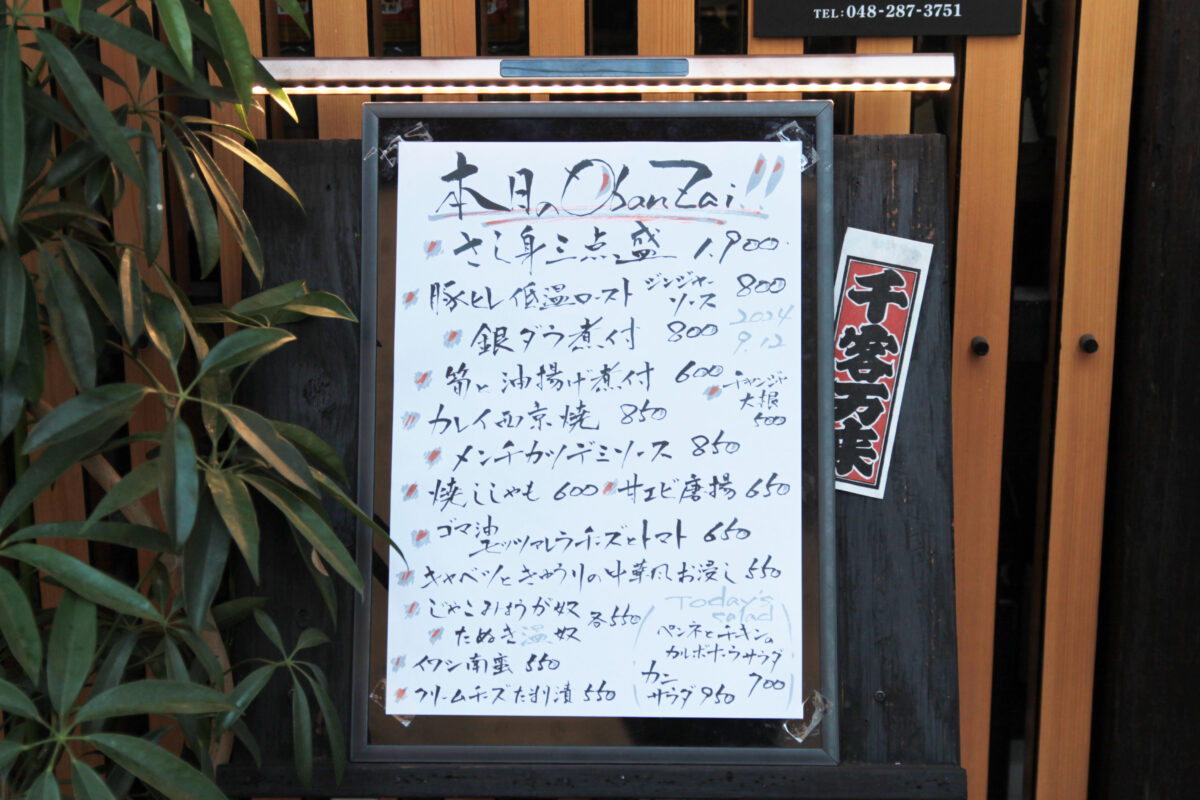 TEL:048-287-3751
本日のObanZai!!
さし身三点盛 1.900
豚ヒレ低温ロースト ジンジャーソース 800
2024
9.12
銀ダラ煮付 800
筍と油揚げ煮付 600
チャンジャ
大根
500
カレイ西京焼 850
メンチカツデミソース 850
焼ししゃも 600 甘エビ唐揚 650
ゴマ油
モッツァレラチーズとトマト 650
キャベツときゅうりの中華風お浸し 550
じゃこみょうが奴
たぬき温奴
各550
イワシ南蛮 550
クリームチーズたまり漬 550
Today's
salad
ペンネとチキンの
カルボナーラサラダ
700
カニ
サラダ 950
千客万来